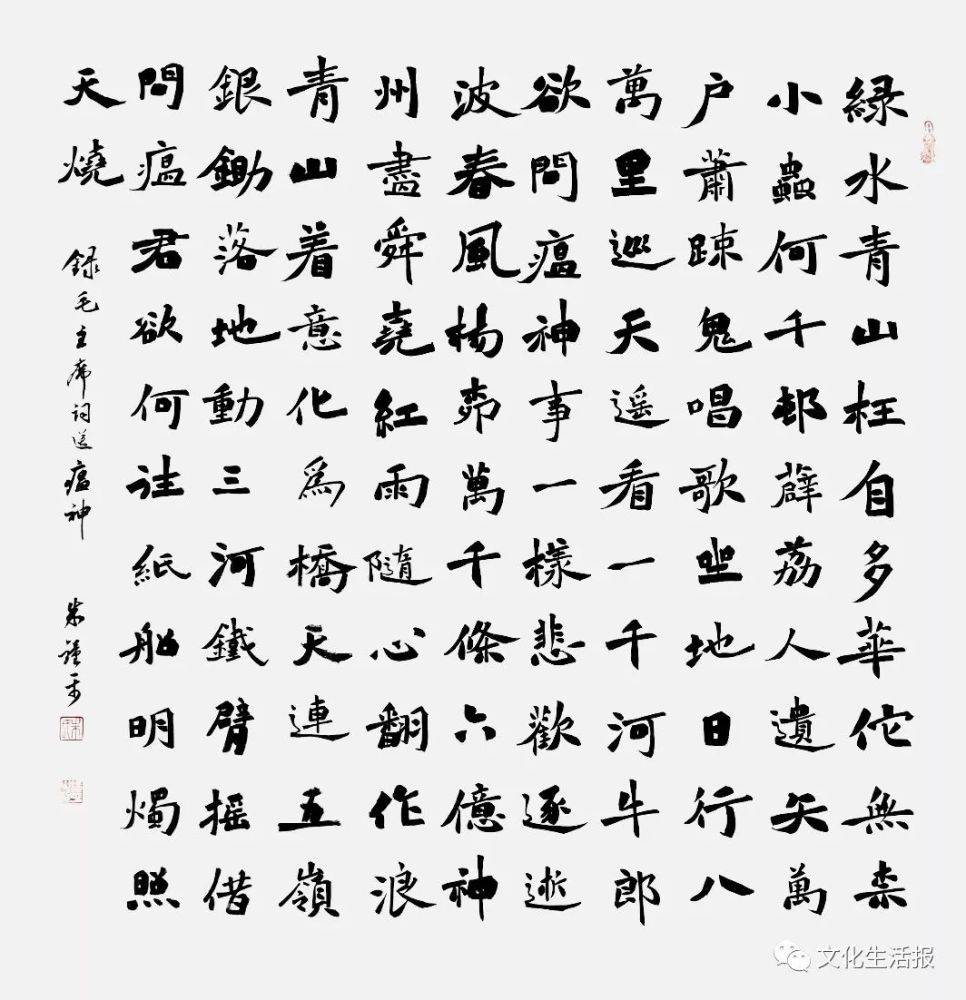 緑水青山枉自多華佗無柰
小蟲何千邨薜荔人遺矢萬
户蕭踈鬼唱歌坐地日行八
萬里巡天遥看一千河牛郎
欲問瘟神事一樣悲歡逐逝
波春風楊桺萬千條六億神
州盡舜堯紅雨隨心翻作浪
青山着意化爲橋天連五嶺
銀鋤落地動三河鐵臂摇借
問瘟君欲何往紙船明燭照
天燒
録毛主席詞送瘟神
朱
文化生活报